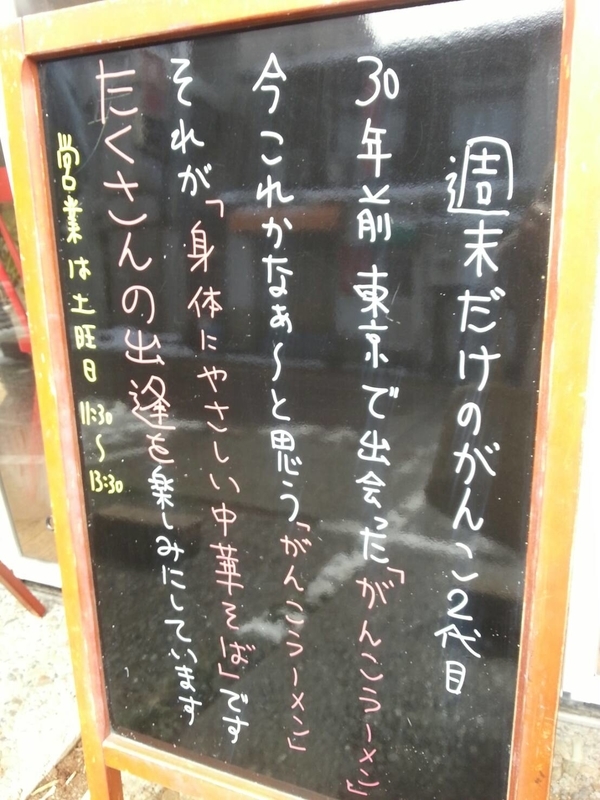 週末だけのがんこ2代目
30年前 東京で出会った「がんこラーメン」
今これかなぁ〜と思う「がんこラーメン」
それが「身体にやさしい中華そば」です
たくさんの出逢を楽しみにしています
営業は土旺日 11:30〜13:30